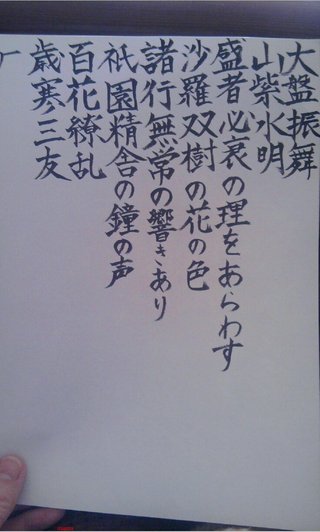 歳寒三友
百花繚乱
祇園精舎の鐘の声
諸行無常の響きあり
沙羅双樹の花の色
盛者必衰の理をあらわす
山柴水明
大盤振舞